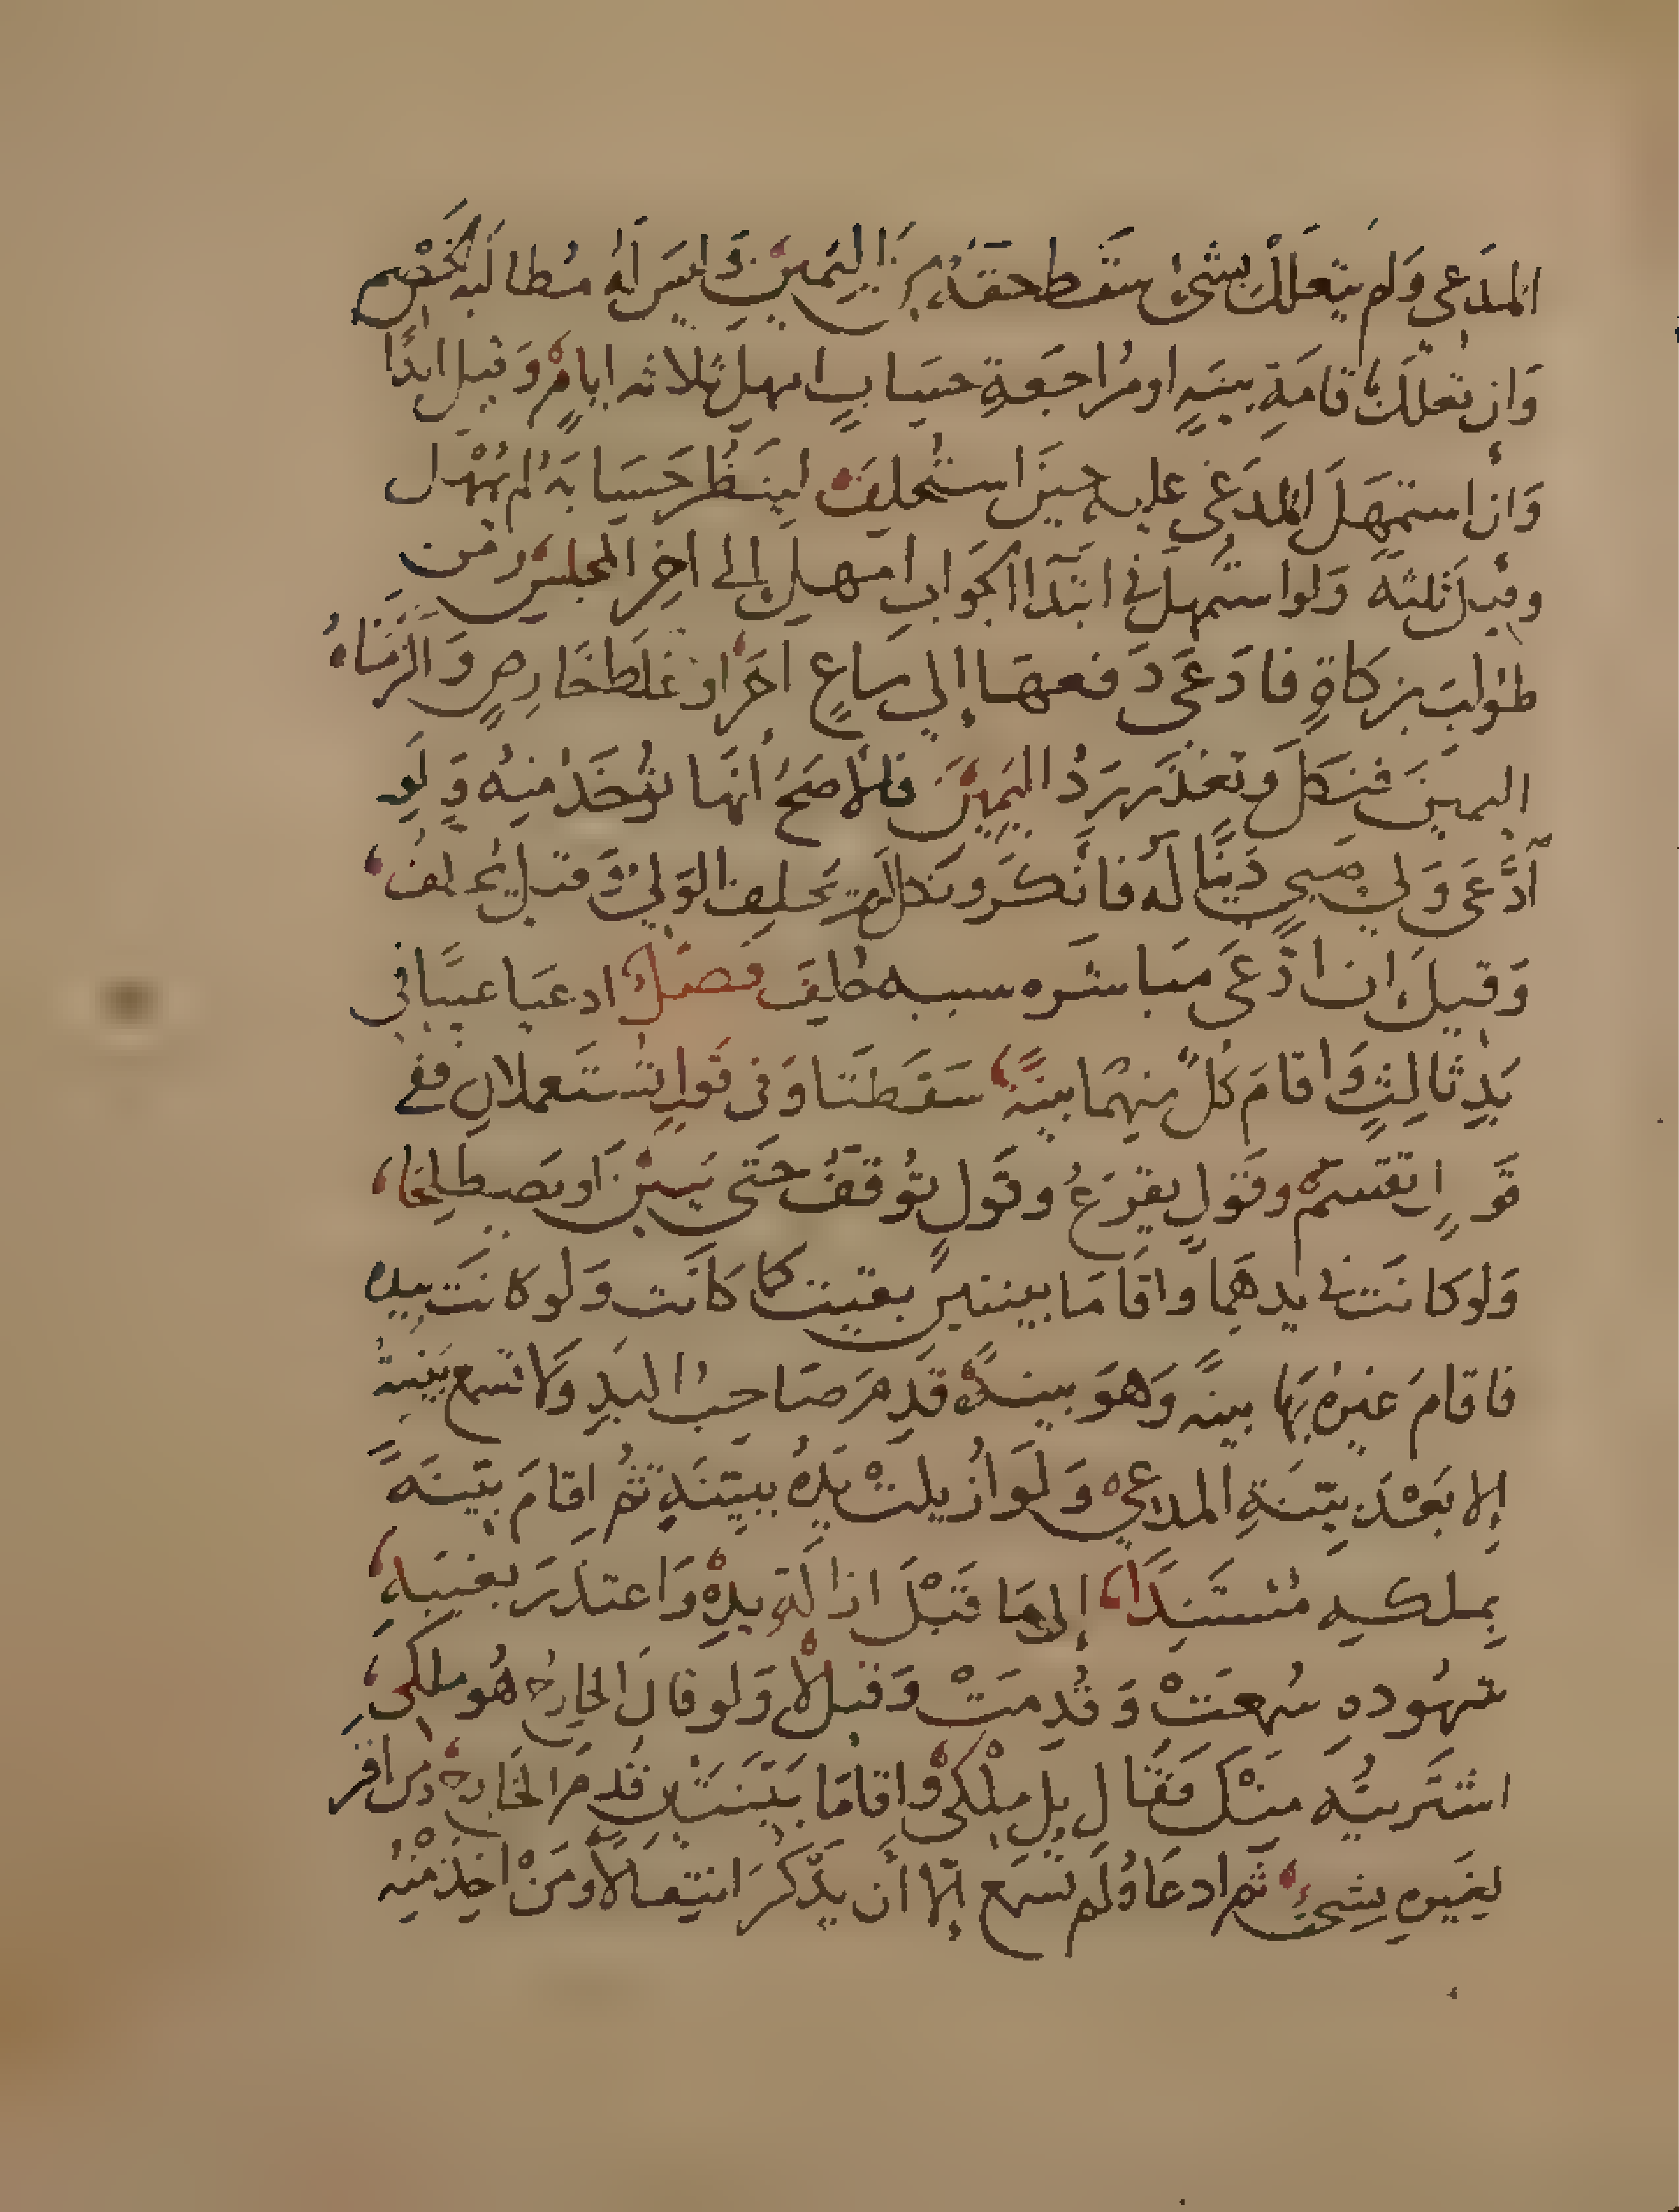 المدَعي وَلم يتعلَّلْ بشئ سَقَط حقهُ مِنَ اليَمينِ وَليسَ لهُ مُطالَبه الخَصْم
وَان تعلَلَ باقامَةِ بينَهٍ او مُراجَعةِ حِسَابٍ امهِل ثلاثه ايامٍ وَقيل ابدًا
وَان استمهَلَ المدَعَي عليه حينَ استُحلِفَ لينَظُرَ حسَابَهُ لم يُمْهَل
وقيلَ ثلثةً وَلو استمُهل في ابتدَا الجَوابِ امهل إلى اخِر المجلسِ ومَن
طولبَ بزكاةٍ فادَعَى دَفعهَا إلي سَاعٍ اخَرَ او غَلَط خَارِصٍ وَالزَمناهُ
اليمينَ فنكَلَ وتعَذرَ رَدُ اليَمِينَ فالاصَحُ أنهَا تؤخَذ منِهُ وَلَو
اَدَّعَى وَلي صَبيٍ دَينًا لهُ فانكَرَ ونكَل لم يَحلِف الوَليُ وَقيل يحلفُ
وَقيلَ ان ادَّعَى مبَاشَره سببه حَلفَ فصَل ادعيَا عينًا في
يَدِ ثالِثٍ وَاقامَ كُلٌ منهمَا بينَةً سَقَطَتا وَفي قَولٍ تُستَعملانِ ففي
قَولٍ تقتسم وقَولٍ يقرَعُ وقَولٍ تُوقَفُ حَتى يَبينَ اَو يَصطلِحَا
وَلو كانَت في يدهِمَا واقَامَا بينتينِ بقيت كما كانَت وَلو كانَت بيدِه
فاقامَ غيرُه بِهَا بينهً وَهوَ بينةً قدِمَ صَاحِبُ اليَدِ وَلا تسمع بَينتهُ
إلا بَعْدَ بيّنَةِ المدعي وَلَو اُزيلتْ يَدُهُ ببيّنَةٍ ثُم اقامَ بيّنَةً
بِملكه مُسْتَنِدًا إلى مَا قَبْلَ ازالةِ يدِهِ وَاعتذرَ بغيبَةِ
شهُودهِ سُمعَتْ وَقُدمَتْ وَقيل لاْ وَلو قالَ الخارجُ هُو ملكي
اشتَريتُه منْكَ فَقَال بل مِلْكي واقامَا بَيّنَتْينِ قُدِمَ الخَارِج ومن اقر
لغَيرِهِ بِشئٍ ثم ادعَاهُ لَم تسمَع إلّا أَن يَذكُرَ انتِقالًا وَمَنْ اخِذَ مْنِهُ